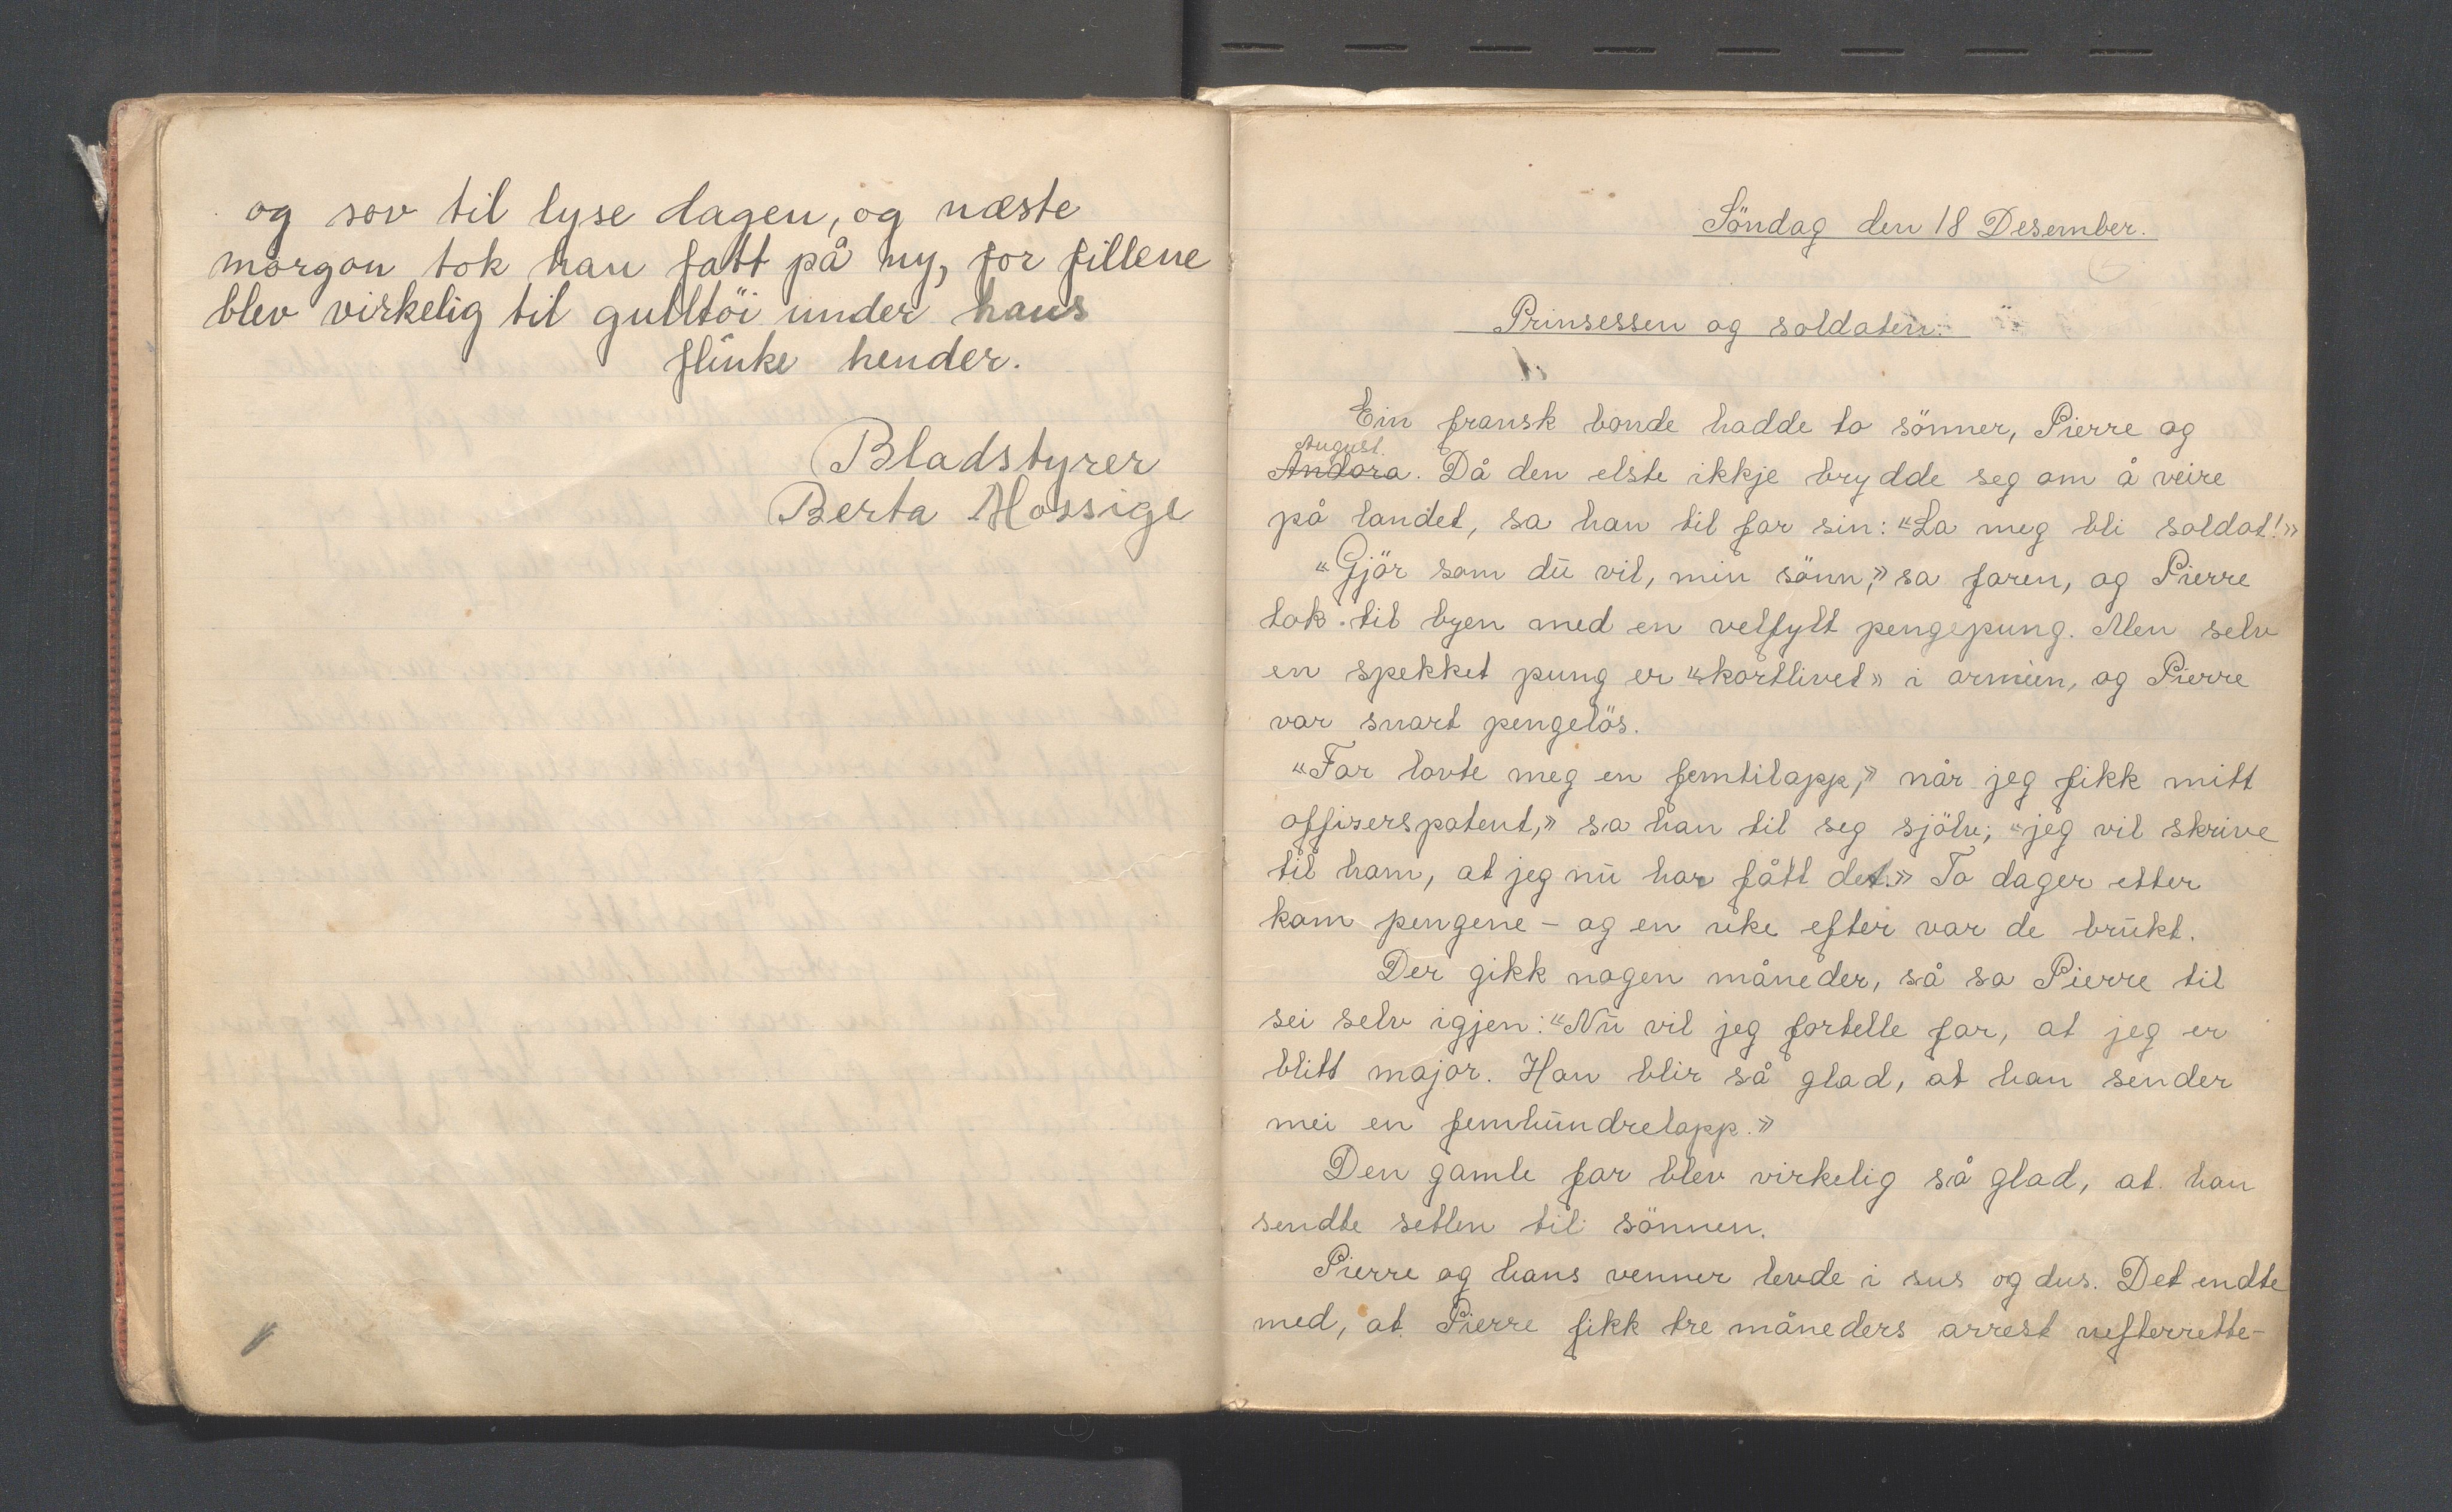 og sov til lyse dagen, og næste
morgon tok han fatt på ny, for fillene
blev virkelig til gulltöi under hans
flinke hender.
Bladstyrer
Berta Mossige
Söndag den 18 Desember.
Prinsessen og soldaten.
Ein fransk bonde hadde to sönner, Pierre og
August.
Andora. Då den elste ikkje brydde seg om å veire
på landet, sa han til far sin: «La meg bli soldat!»
«Gjör som du vil, min sönn,» sa faren, og Pierre
tok til byen med en velfylt pengepung. Men selv
en spekket pung er «kortlivet» i armeen, og Pierre
var snart pengelös.
«Far lovte meg en femtilapp,» når jeg fikk mitt
offiserspatent,» sa han til seg sjölv; «jeg vil skrive
til ham, at jeg nu har fått det.» To dager etter
kom pengene – og en uke efter var de brukt.
Der gikk nogen måneder, så sa Pierre til
sei selv igjen: «Nu vil jeg fortelle far, at jeg er
blitt major. Han blir så glad, at han sender
mei en femhundrelapp.»
Den gamle far blev virkelig så glad, at han
sendte setlen til sönnen.
Pierre og hans venner levde i sus og dus. Det endte
med, at Pierre fikk tre måneders arrest uefterrette-